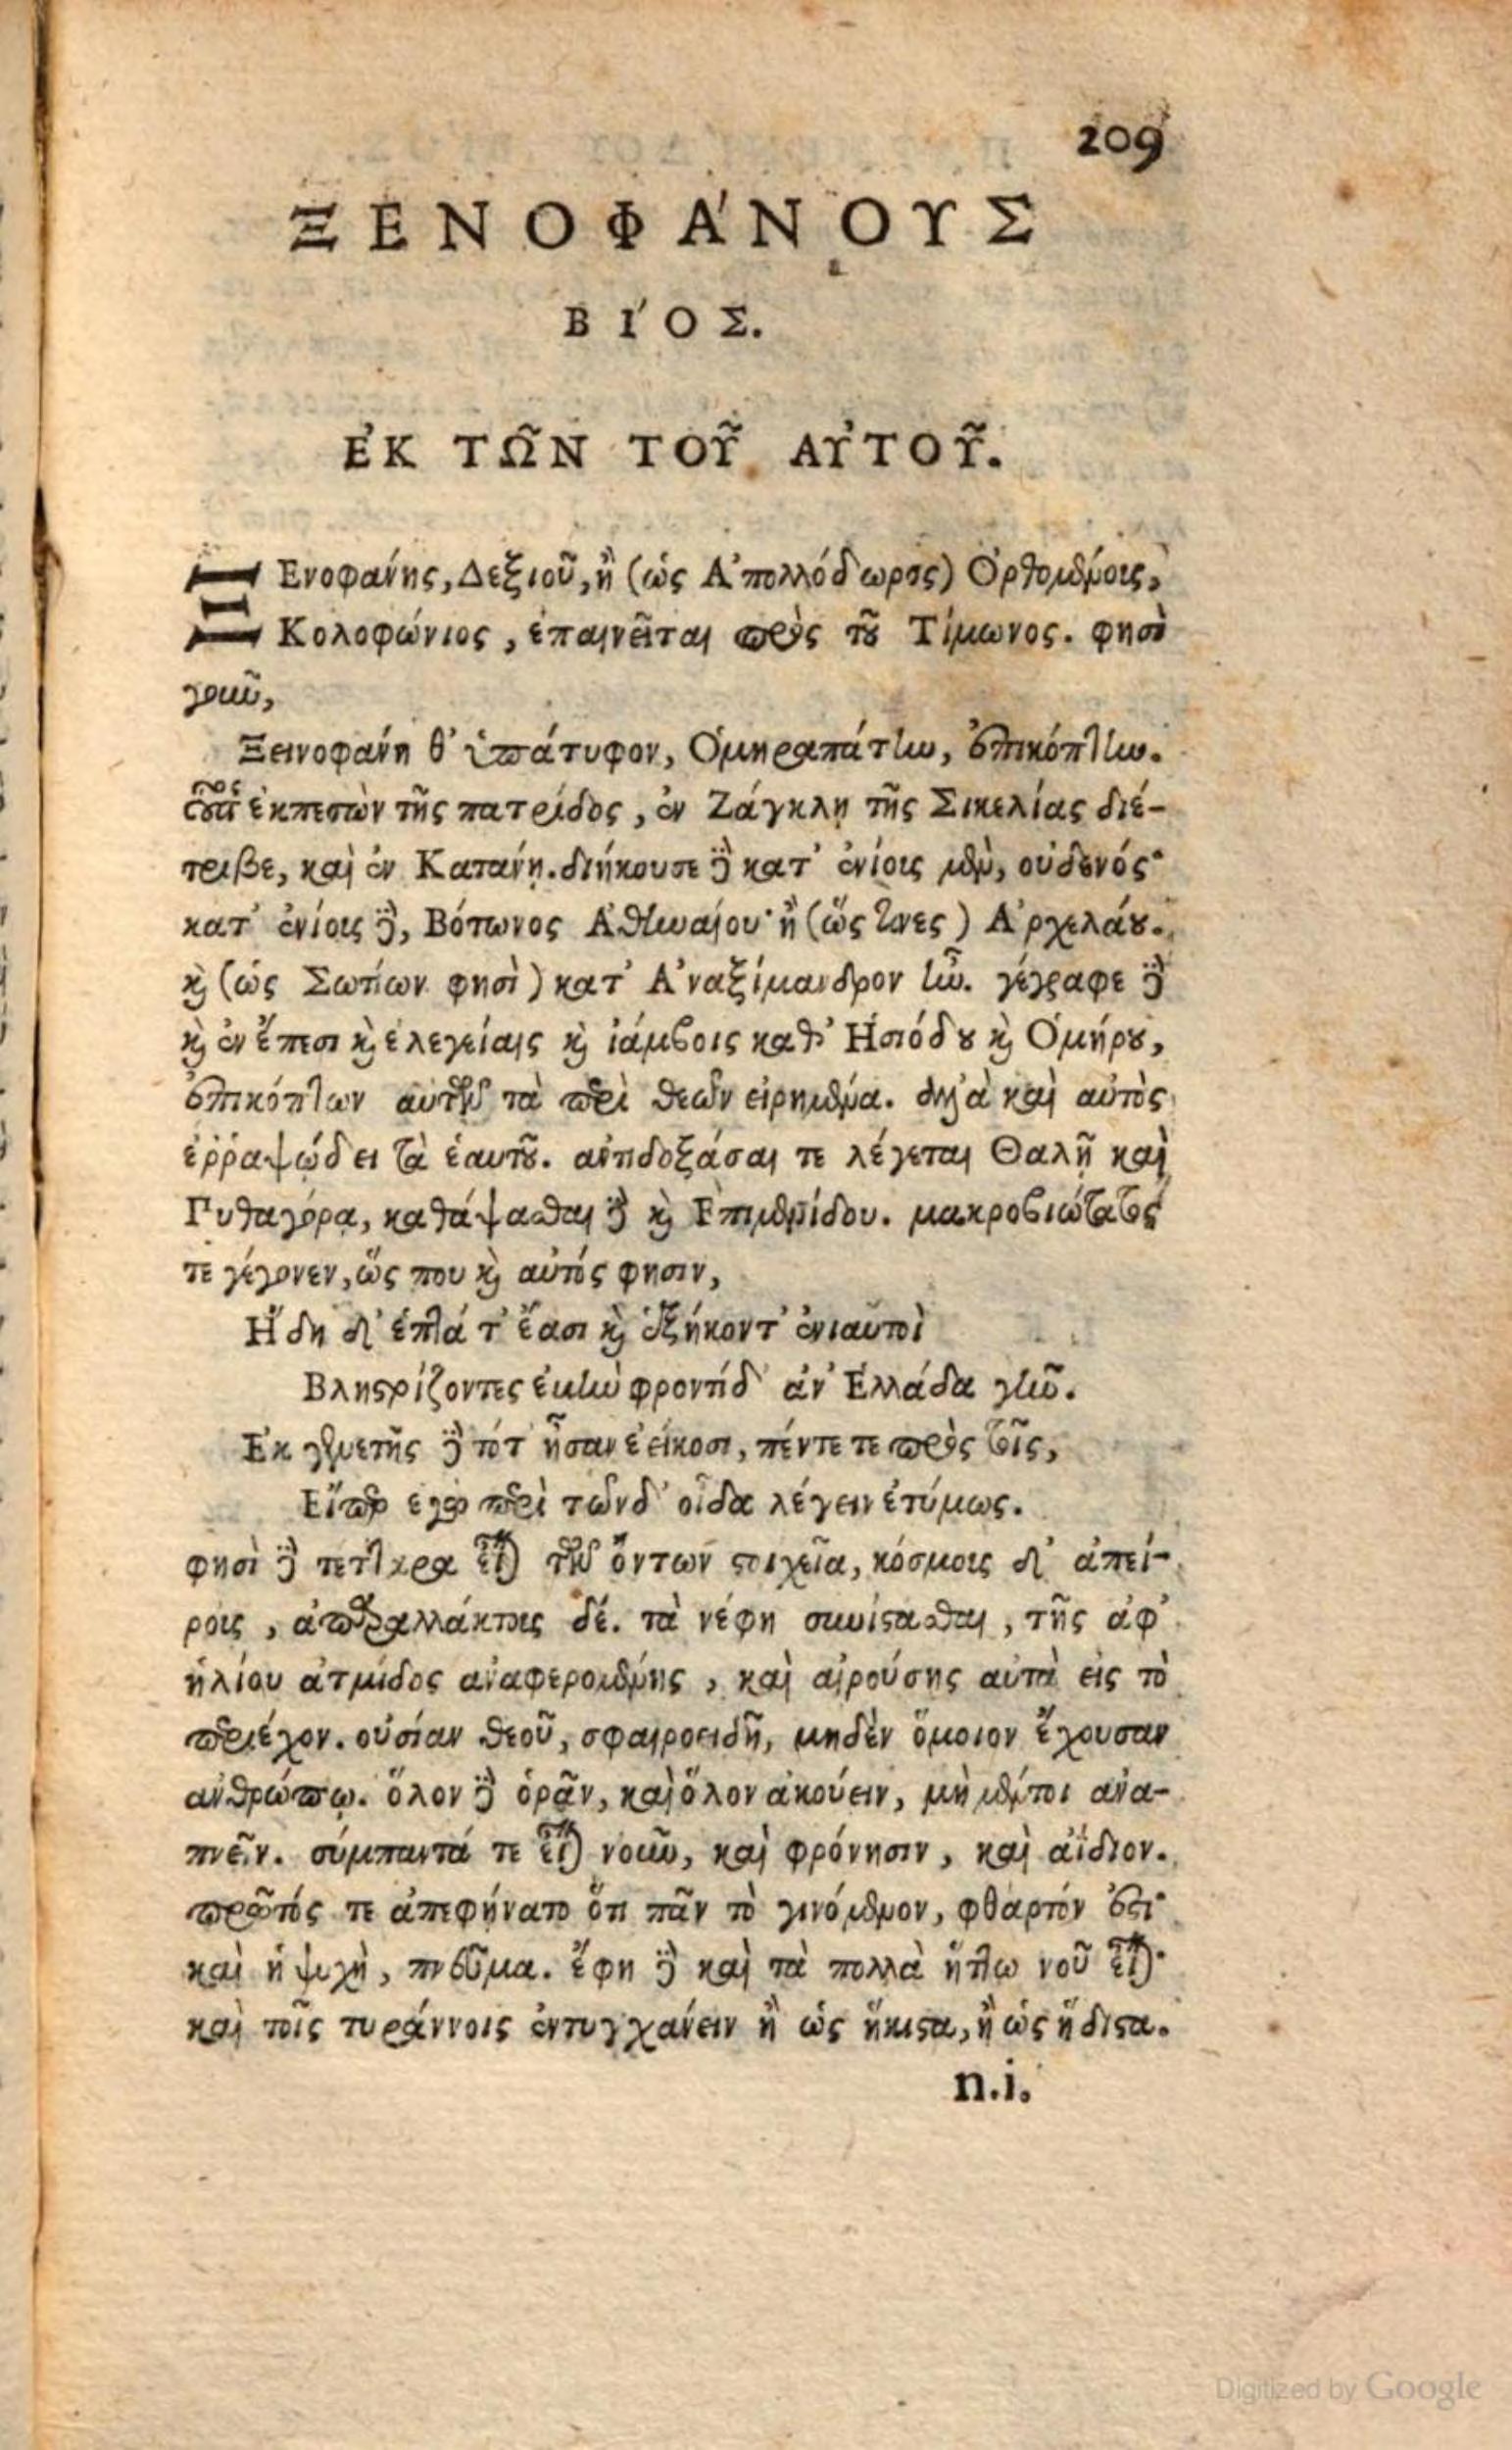 209
ΞΕΝΟΦΑΝΟΥΣ
ΒΙΟΣ.
ἘΚ ΤΩ͂Ν ΤΟΥ͂ ΑΥ̓ΤΟΥ͂.
ΞΕνοφάνης, Δεξιοῦ, ἢ (ὡς Ἀπολλόδωρος) Ὀρθομένους,
Κολοφώνιος, ἐπαινεῖται πρὸς τοῦ Τίμωνος. φησὶ
γοῦν,
Ξεινοφάνη θ' ὑπάτυφον, Ὁμηραπάτην, ἐπικόπτην.
οὗτος ἐκπεσὼν τῆς πατρίδος, ἐν Ζάγκλῃ τῆς Σικελίας διέ-
τριβε, καὶ ἐν Κατάνῃ. διήκουσε δὲ κατ' ἐνίους μὲν, οὐδενός·
κατ' ἐνίους δὲ, Βότωνος Ἀθηναίου· ἢ (ὥς τινες) Ἀρχελάου.
καὶ (ὡς Σωτίων φησὶ) κατ' Ἀναξίμανδρον ἦν. γέγραφε δὲ
καὶ ἐν ἔπεσι καὶ ἐλεγείαις καὶ ἰάμβοις καθ' Ἡσιόδου καὶ Ὁμήρου,
ἐπικόπτων αὐτῶν τὰ περὶ θεῶν εἰρημένα. ἀλλὰ καὶ αὐτὸς
ἐῤῥαψῴδει τὰ ἑαυτοῦ. ἀντιδοξάσαι τε λέγεται Θαλῇ καὶ
Πυθαγόρᾳ, καθάψασθαι δὲ καὶ Ἐπιμενίδου. μακροβιώτατός
τε γέγονεν, ὥς που καὶ αὐτός φησιν,
Ἤδη δ' ἑπτά τ' ἔασι καὶ ἑξήκοντ' ἐνιαυτοὶ
Βληστρίζοντες ἐμὴν φροντίδ' ἀν' Ἑλλάδα γῆν.
Ἐκ γενετῆς δὲ τότ' ἦσαν ἐείκοσι, πέντε τε πρὸς τοῖς,
Εἴπερ ἐγὼ περὶ τῶνδ' οἶδα λέγειν ἐτύμως.
φησὶ δὲ τέτταρα εἶναι τῶν ὄντων στοιχεῖα, κόσμους δ' ἀπεί-
ρους, ἀπαραλλάκτους δέ. τὰ νέφη συνίστασθαι, τῆς ἀφ'
ἡλίου ἀτμίδος ἀναφερομένης, καὶ αἰρούσης αὐτὰ εἰς τὸ
περιέχον. οὐσίαν θεοῦ, σφαιροειδῆ, μηδὲν ὅμοιον ἔχουσαν
ἀνθρώπῳ. ὅλον δὲ ὁρᾶν, καὶ ὅλον ἀκούειν, μὴ μέντοι ἀνα-
πνεῖν. σύμπαντά τε εἶναι νοῦν, καὶ φρόνησιν, καὶ ἀΐδιον.
πρῶτός τε ἀπεφήνατο ὅτι πᾶν τὸ γινόμενον, φθαρτόν ἐστι·
καὶ ἡ ψυχὴ, πνεῦμα. ἔφη δὲ καὶ τὰ πολλὰ ἥττω νοῦ εἶναι·
καὶ τοῖς τυράννοις ἐντυγχάνειν ἢ ὡς ἥκιστα, ἢ ὡς ἥδιστα.
n.i.
Digitized by Google